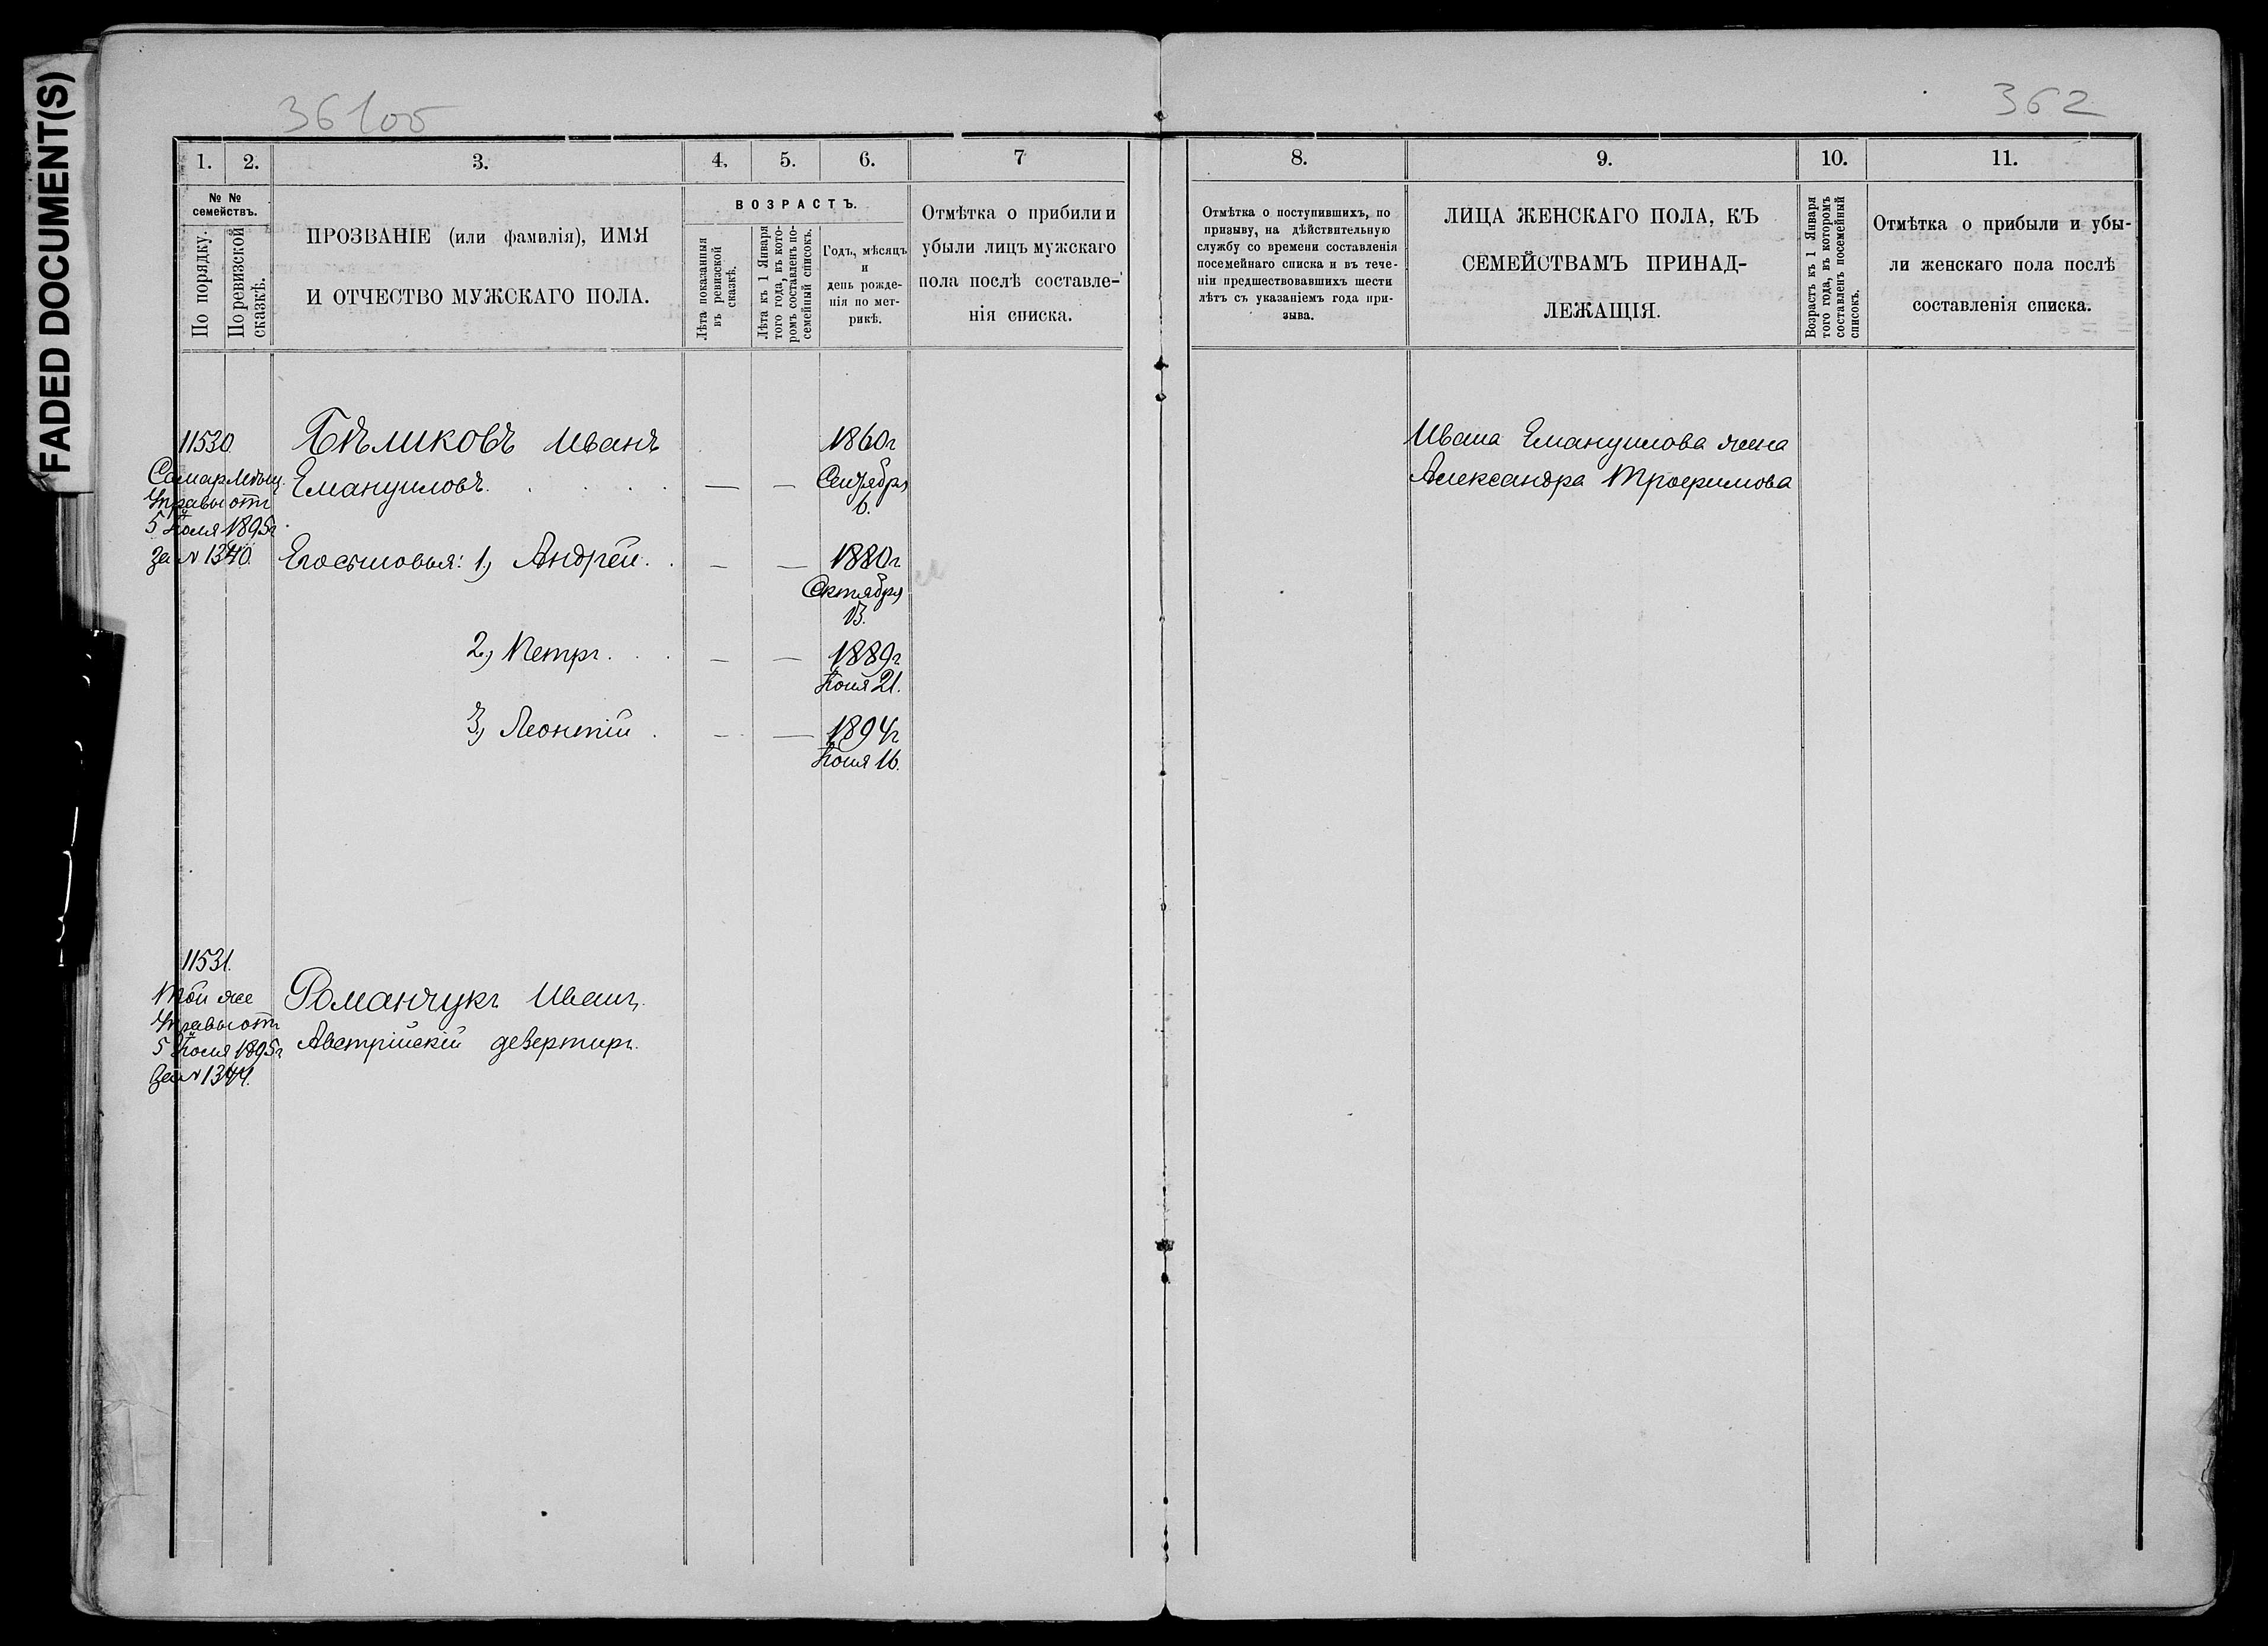 FADED DOCUMENT(S)
362
1.
2.
3.
4.
5.
6.
7
№ №
семействъ.
По порядку.
По ревизской
сказкѣ.
ПРОЗВАНІЕ (или фамилія), ИМЯ
И ОТЧЕСТВО МУЖСКАГО ПОЛА.
ВОЗРАСТЪ.
Лѣта показанныя
въ ревизской
сказкѣ.
Лѣта къ 1 Января
того года, въ кото-
ромъ составленъ по-
семейный списокъ.
Годъ, мѣсяцъ
и
день рожде-
нія по мет-
рикѣ.
Отмѣтка о прибыли и
убыли лицъ мужскаго
пола послѣ составле-
нія списка.
11530
Самар. Мѣщ.
Управы отъ
5 Іюля 1895г.
за № 1340.
Бѣликовъ Иванъ
Емануиловъ.
1860г
Сентября
6.
Егосыновья: 1, Андрей.
1880г
Октября
13.
2, Петръ.
1889г
Іюня 21.
3, Леонтій
1894г
Іюня 16.
11531.
Той же
Управы отъ
5 Іюля 1895г
за № 1344.
Романчукъ Иванъ.
Австрійскій дезертиръ.
8.
9.
10.
11.
Отмѣтка о поступившихъ, по
призыву, на дѣйствительную
службу со времени составленія
посемейнаго списка и въ тече-
ніи предшествовавшихъ шести
лѣтъ съ указаніемъ года при-
зыва.
ЛИЦА ЖЕНСКАГО ПОЛА, КЪ
СЕМЕЙСТВАМЪ ПРИНАД-
ЛЕЖАЩІЯ.
Возрастъ къ 1 Января
того года, въ которомъ
составленъ посемейный
списокъ.
Отмѣтка о прибыли и убы-
ли женскаго пола послѣ
составленія списка.
Ивана Емануилова жена
Александра Трофимова